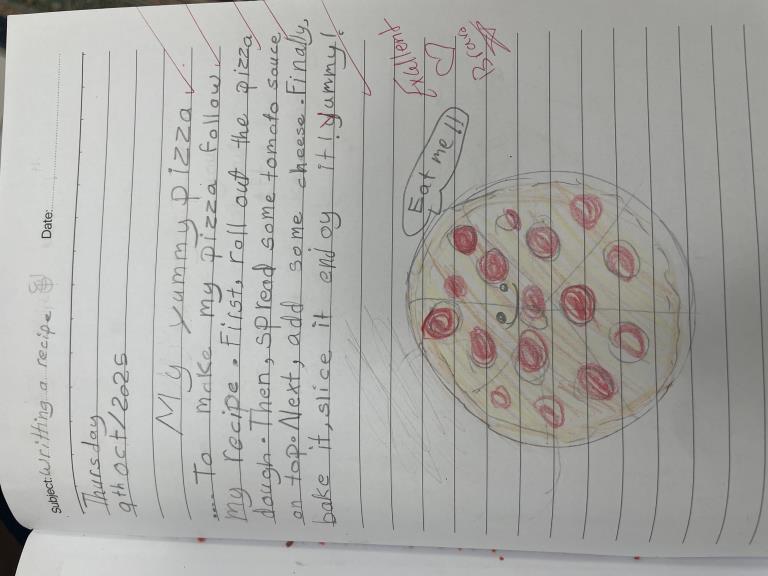 Subject: Writting a recipe
Date:
Thursday
9th Oct/2025
My yummy pizza
To make my pizza follow
my recipe. First, roll out the pizza
dough. Then, spread some tomato sauce
on top. Next, add some cheese. Finally,
bake it, slice it enjoy it! yummy!
Excellent
Bravo
Eat me!!